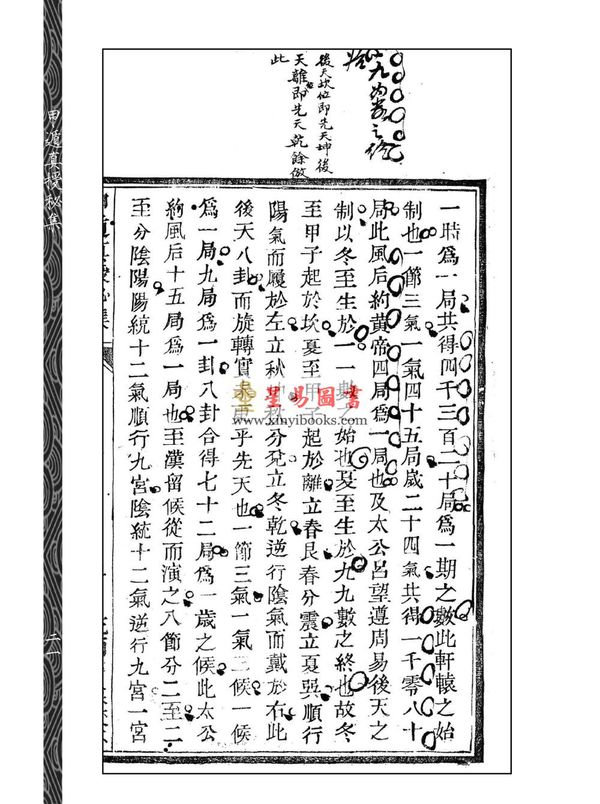 後天坎位即先天坤後
天離即先天乾餘倣
此
一時爲一局共得四千三百二十局爲一期之數此軒轅之始
制也一節三氣一氣四十五局歲二十四氣共得一千零八十
局此風后約黃帝四局爲一局也及太公呂望遵周易後天之
制以冬至生於一一數之始也夏至生於九九數之終也故冬
至甲子起於坎夏至甲子起於離立春艮春分震立夏巽順行
陽氣而履於左立秋坤秋分兌立冬乾逆行陰氣而戴於右此
後天八卦而旋轉實乎先天也一節三氣一氣三候一候
爲一局九局爲一卦八卦合得七十二局爲一歲之候此太公
約風后十五局爲一局也至漢留候從而演之八節分二至二
至分陰陽陽統十二氣順行九宮陰統十二氣逆行九宮一宮
甲遁真授秘集
二一
星易圖書
www.xinyibooks.com